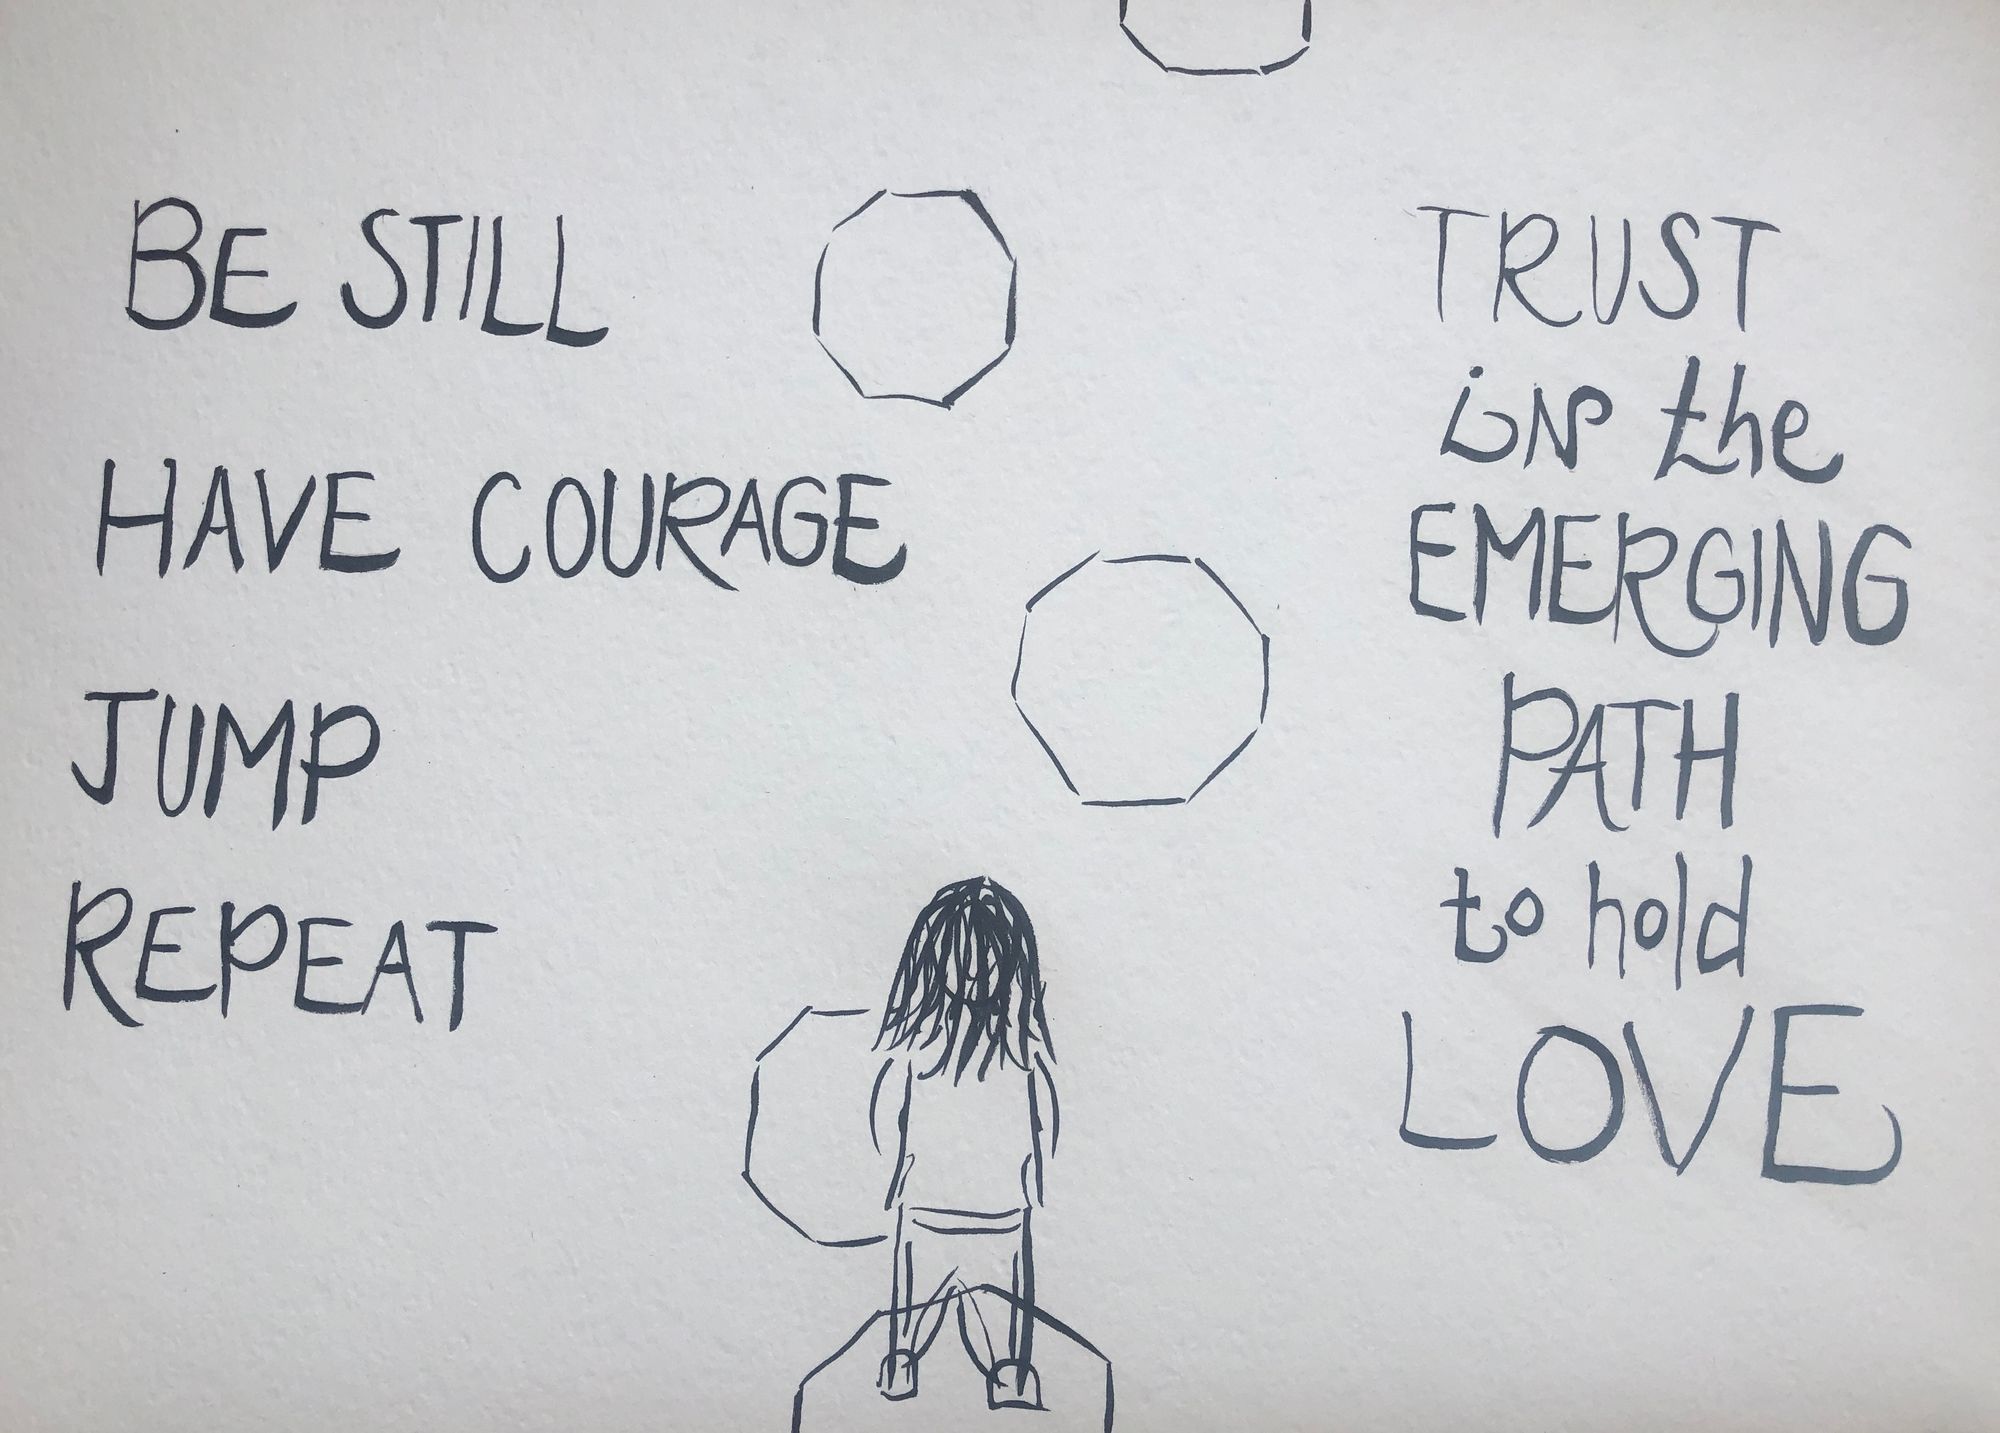 BE STILL
HAVE COURAGE
JUMP
REPEAT
TRUST
in the
EMERGING
PATH
to hold
LOVE